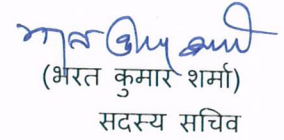 (भरत कुमार शर्मा)
सदस्य सचिव